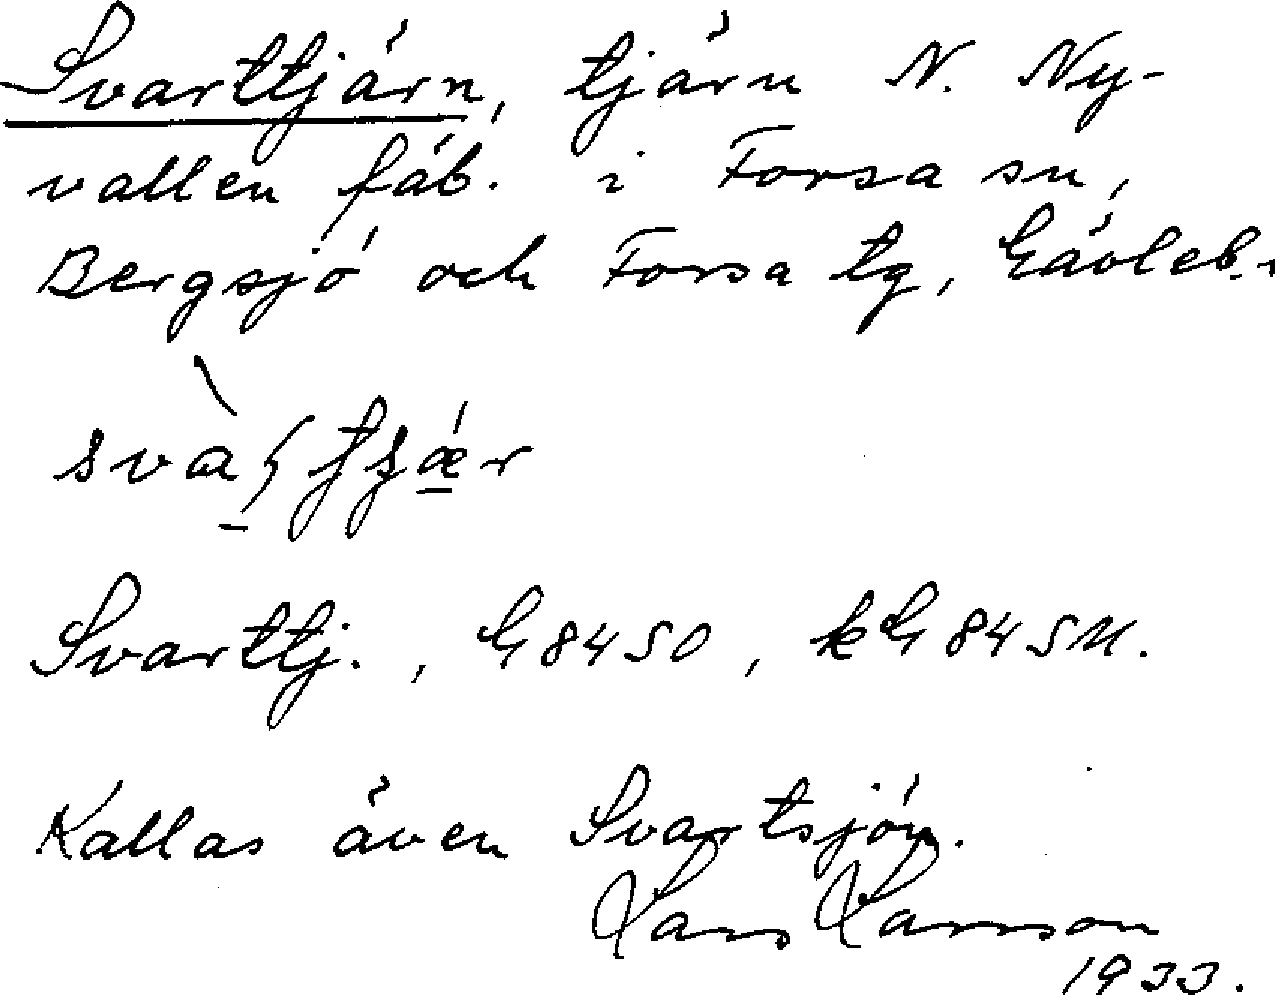 Svarttjärn, tjärn N. Ny-
vallen fäb. i Forsa sn,
Bergsjö och Forsa tg, Gävleb.
Svarttj., G8450, kG8454.
Kallas även Svartsjön.
Lars Larsson
1933.